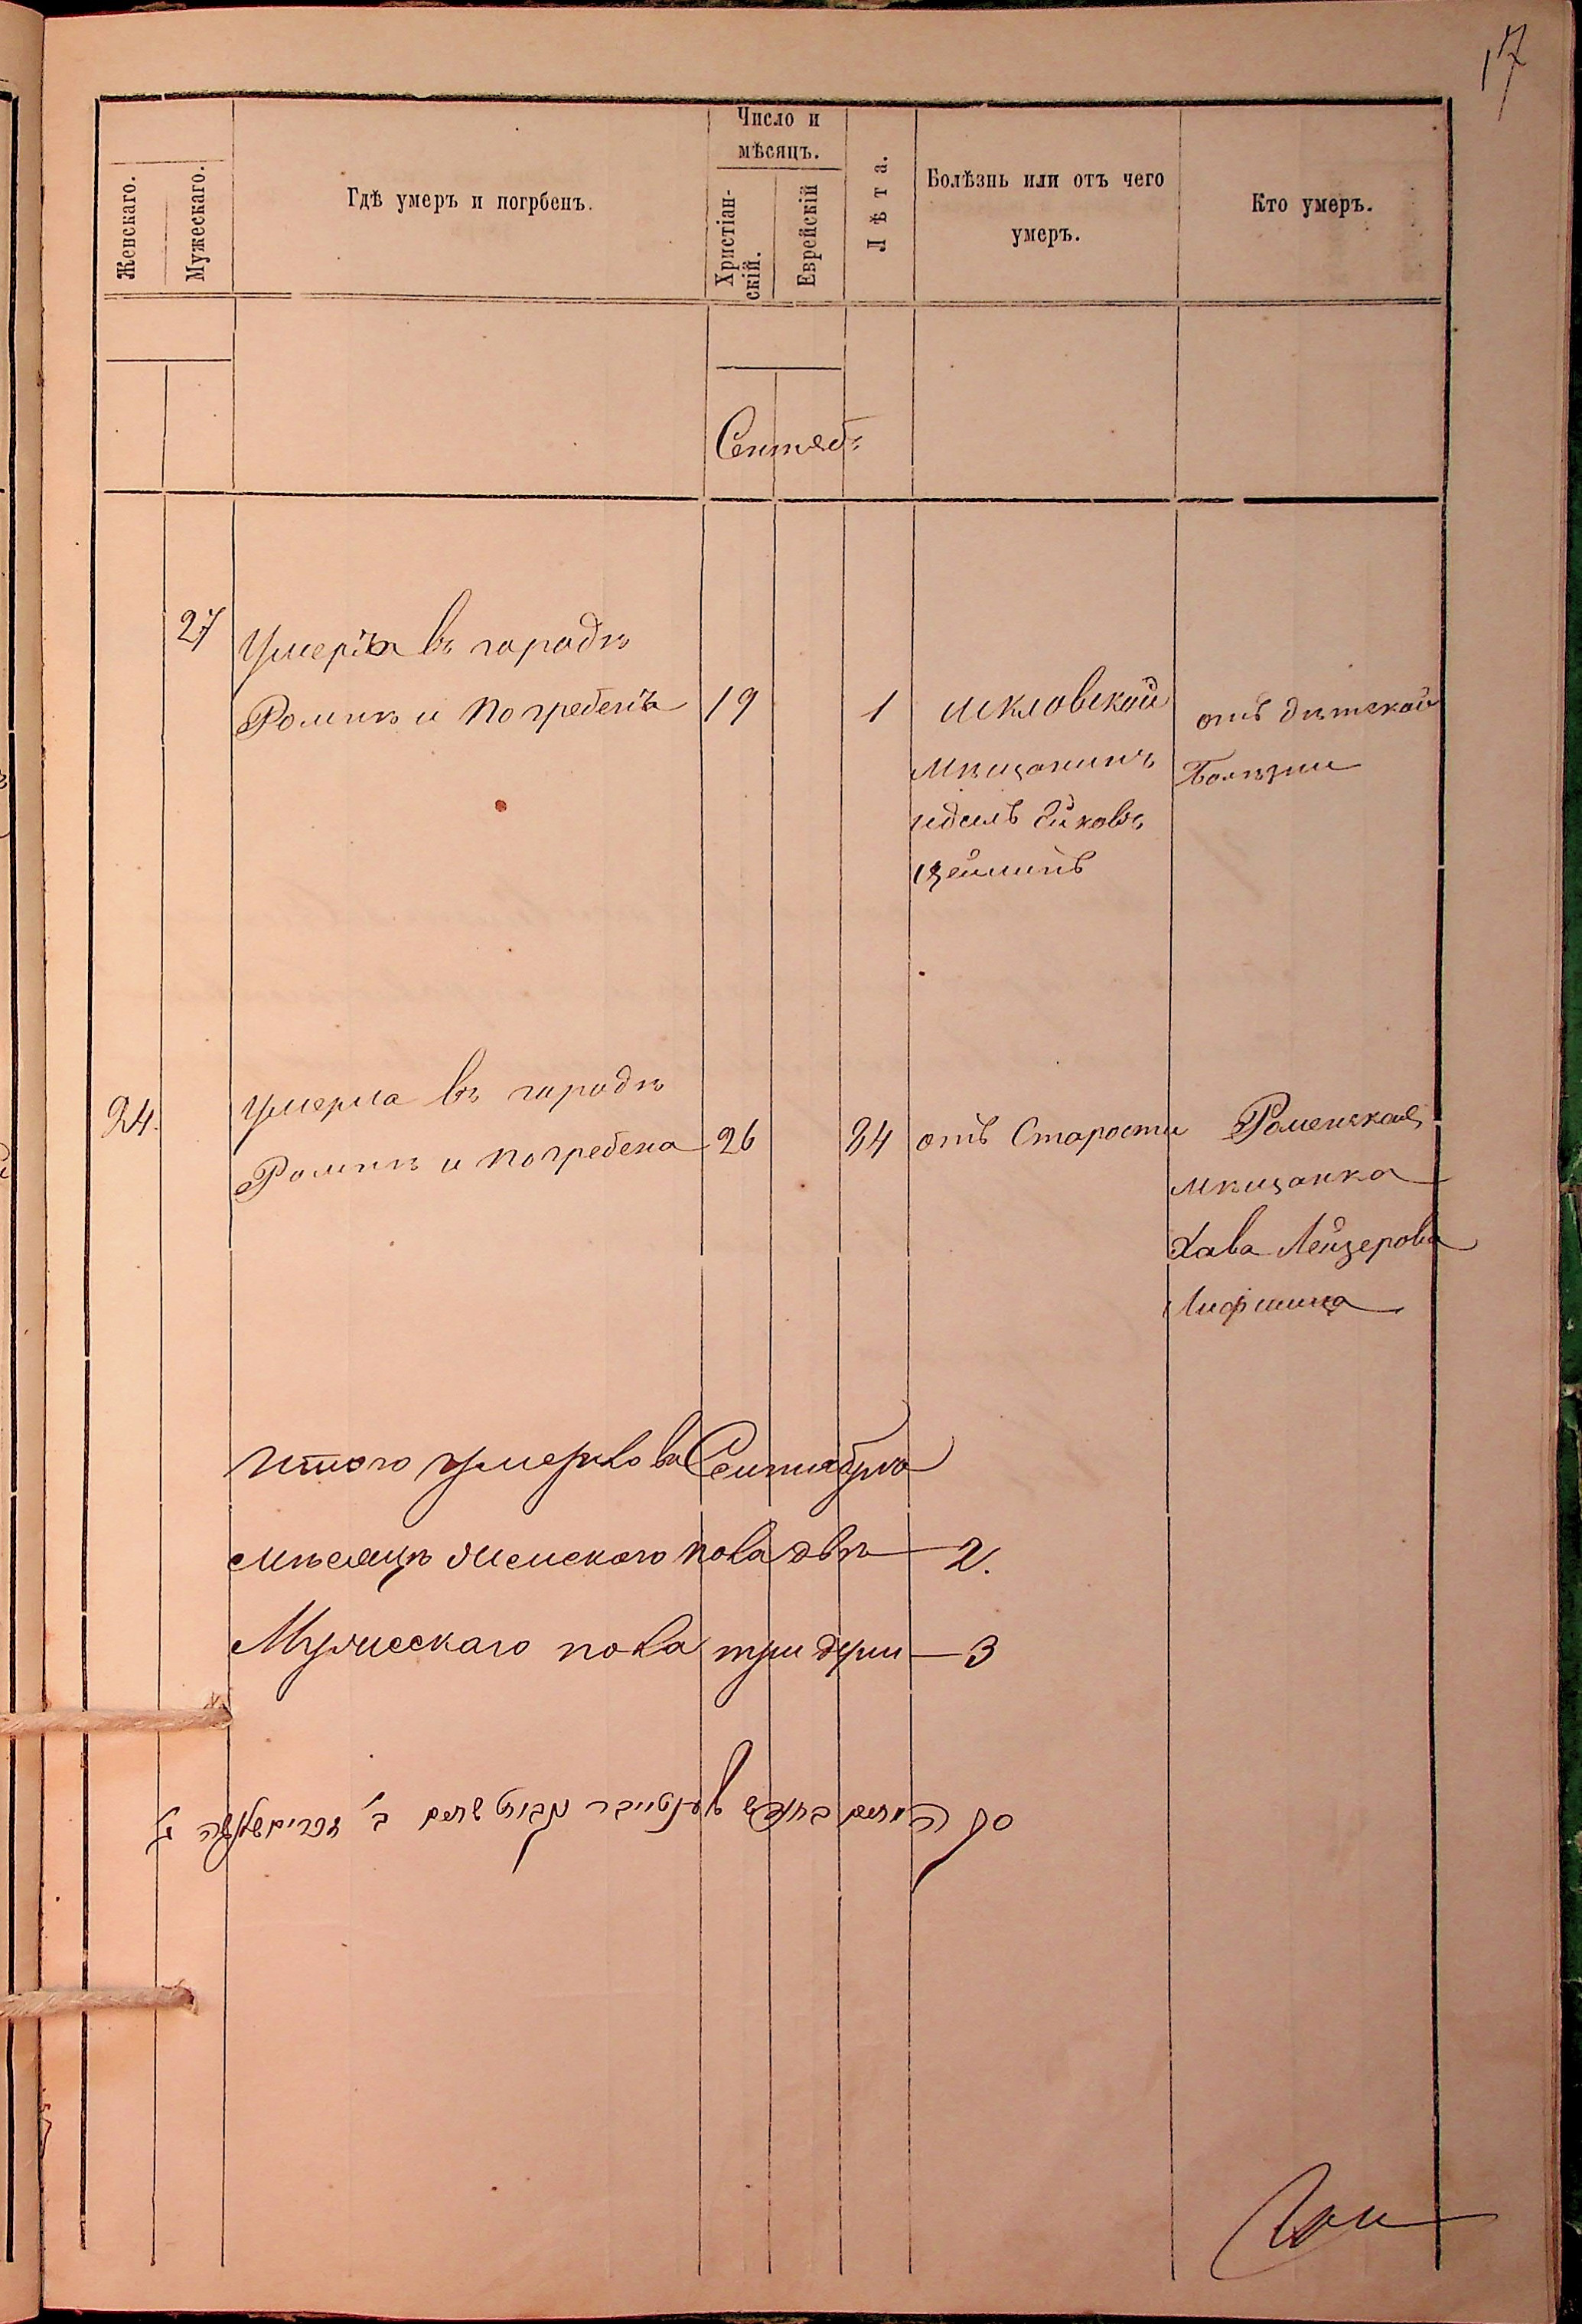 17
Женскаго.
Мужескаго.
Гдѣ умеръ и погрбенъ.
Число и
мѣсяцъ.
Христіан-
скій.
Еврейскій
Лѣта.
Болѣзнь или отъ чего
умеръ.
Кто умеръ.
Сентяб:
27
Умеръ въ городѣ
Ромнѣ и погребенъ
19
1
Мѣщанинъ
отъ дѣтской
Болѣзни
24.
Умерла въ городѣ
Ромнѣ и погребена
26
84
отъ Старости
Роменская
мѣщанка
Хава Лейзерова
Лифшица
Итого умерло въ Сентябрѣ
мѣсяцѣ женскаго пола двѣ — 2.
Мужескаго пола три души — 3